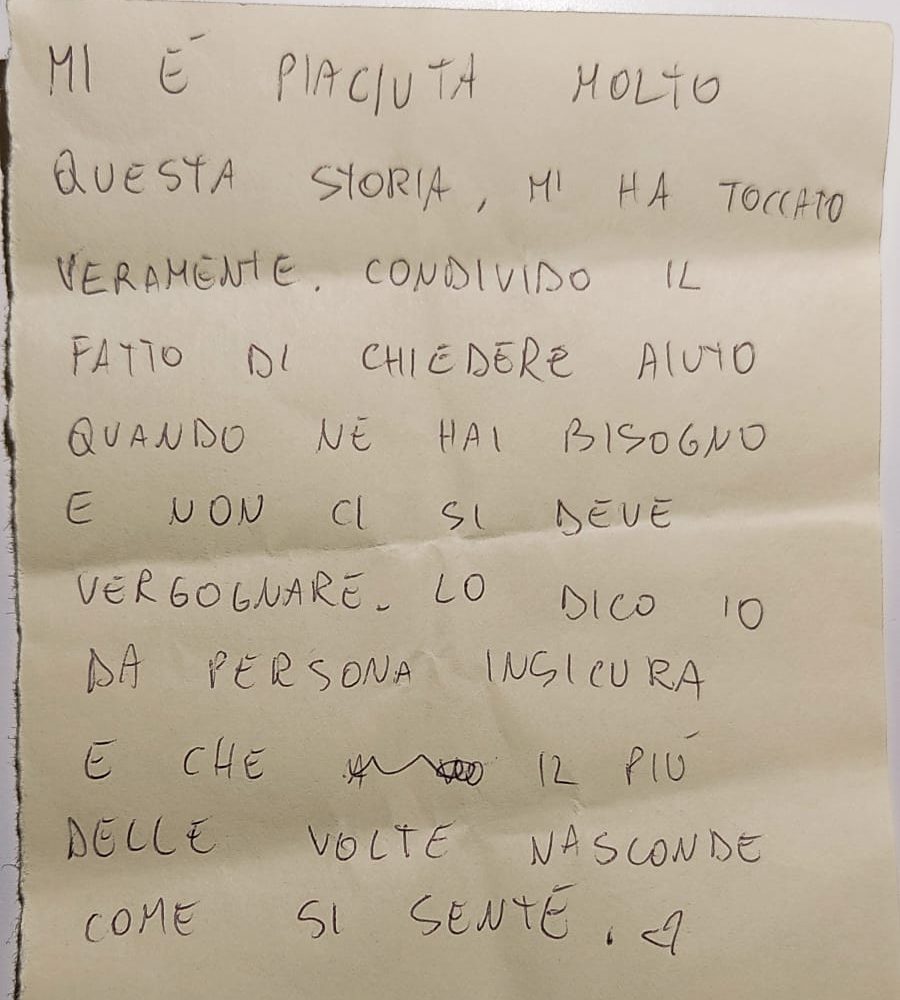 MI É PIACIUTA MOLTO
QUESTA STORIA, MI HA TOCCATO
VERAMENTE. CONDIVIDO IL
FATTO DI CHIEDERE AIUTO
QUANDO NE HAI BISOGNO
E NON CI SI DEVE
VERGOGNARE. LO DICO IO
DA PERSONA INSICURA
E CHE IL PIÚ
DELLE VOLTE NASCONDE
COME SI SENTE. <3